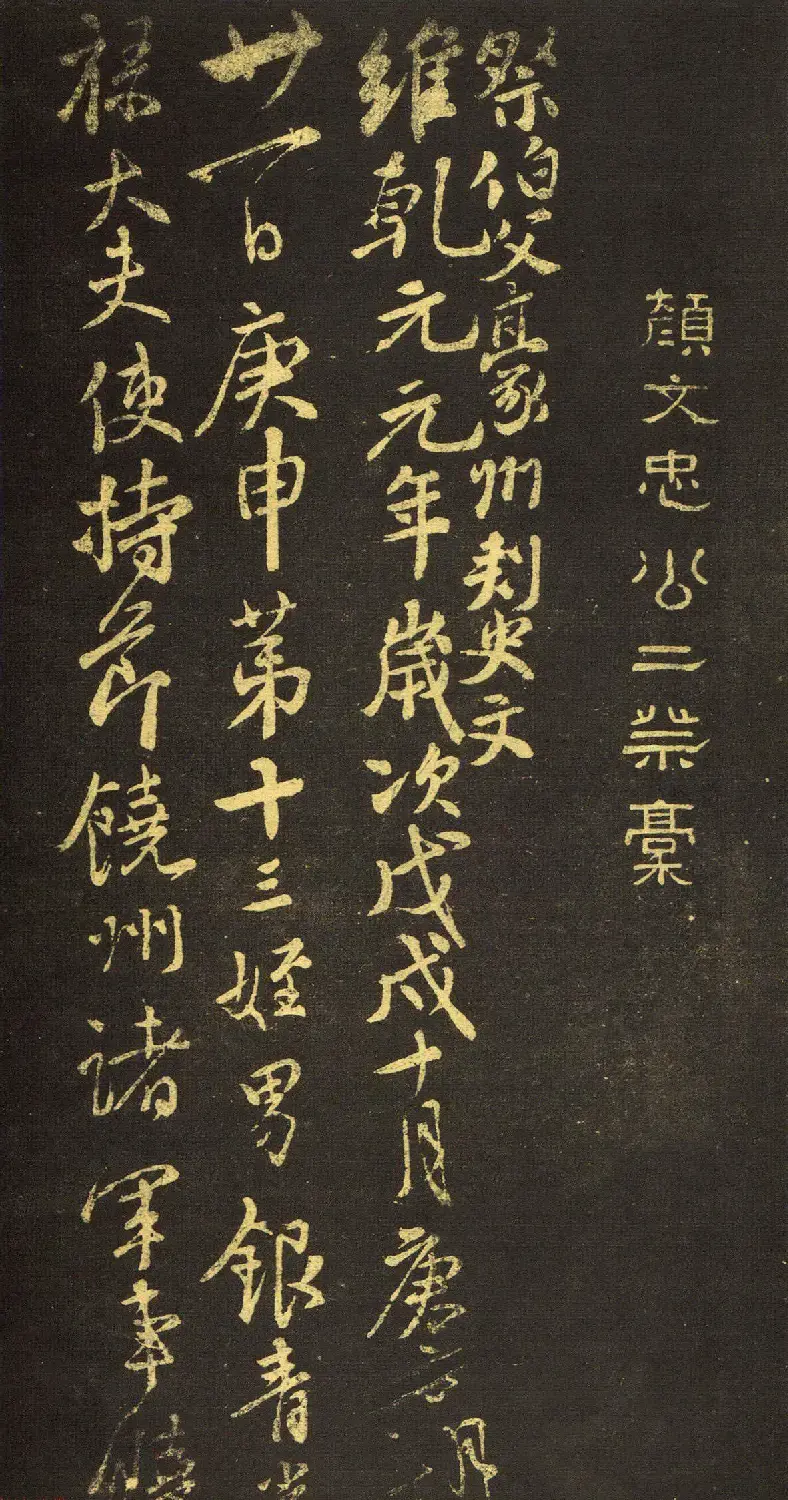 顏文忠公二祭稾
祭伯父豪州刾史文
維乹元元年歲次戊戌十月庚
廿一日庚申第十三姪男銀青
祿大夫使持莭饒州諸軍事饒